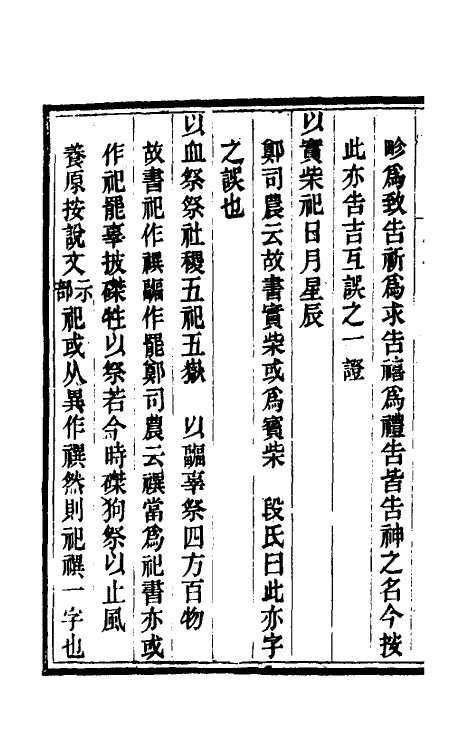 畛爲致告祈爲求告禧爲禮告皆告神之名今按
此亦告吉互誤之一證
以實柴祀日月星辰
鄭司農云故書實柴或爲賓柴　段氏曰此亦字
之誤也
以血祭祭社稷五祀五嶽　以疈辜祭四方百物
故書祀作禩疈作罷鄭司農云禩當爲祀書亦或
作祀罷辜披磔牲以祭若今時磔狗祭以止風
養原按說文示部祀或从異作禩然則祀禩一字也